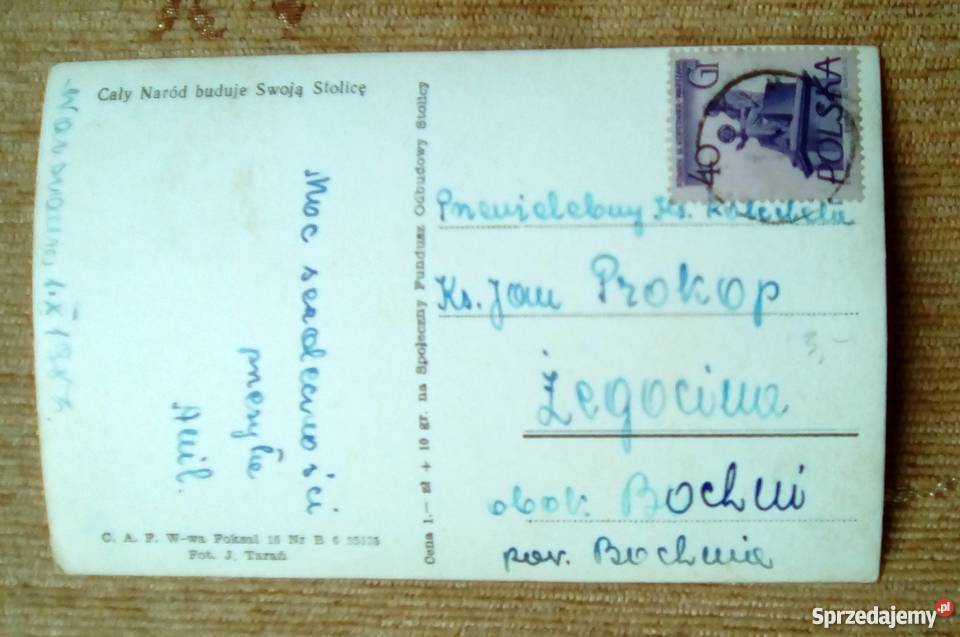 Cały Naród buduje Swoją Stolicę
Moc serdeczności
przesyła
Amil.
C. A. F. W-wa Foksal 16 Nr B 6
Fot. J. Tarań
Cena 1.— zł + 10 gr. na Społeczny Fundusz Odbudowy Stolicy
40 Gr
POLSKA
Przewielebny Ks.
Ks. Jan Prokop
Żegocina
obok. Bochni
pow. Bochnia
3,-
Sprzedajemy.pl